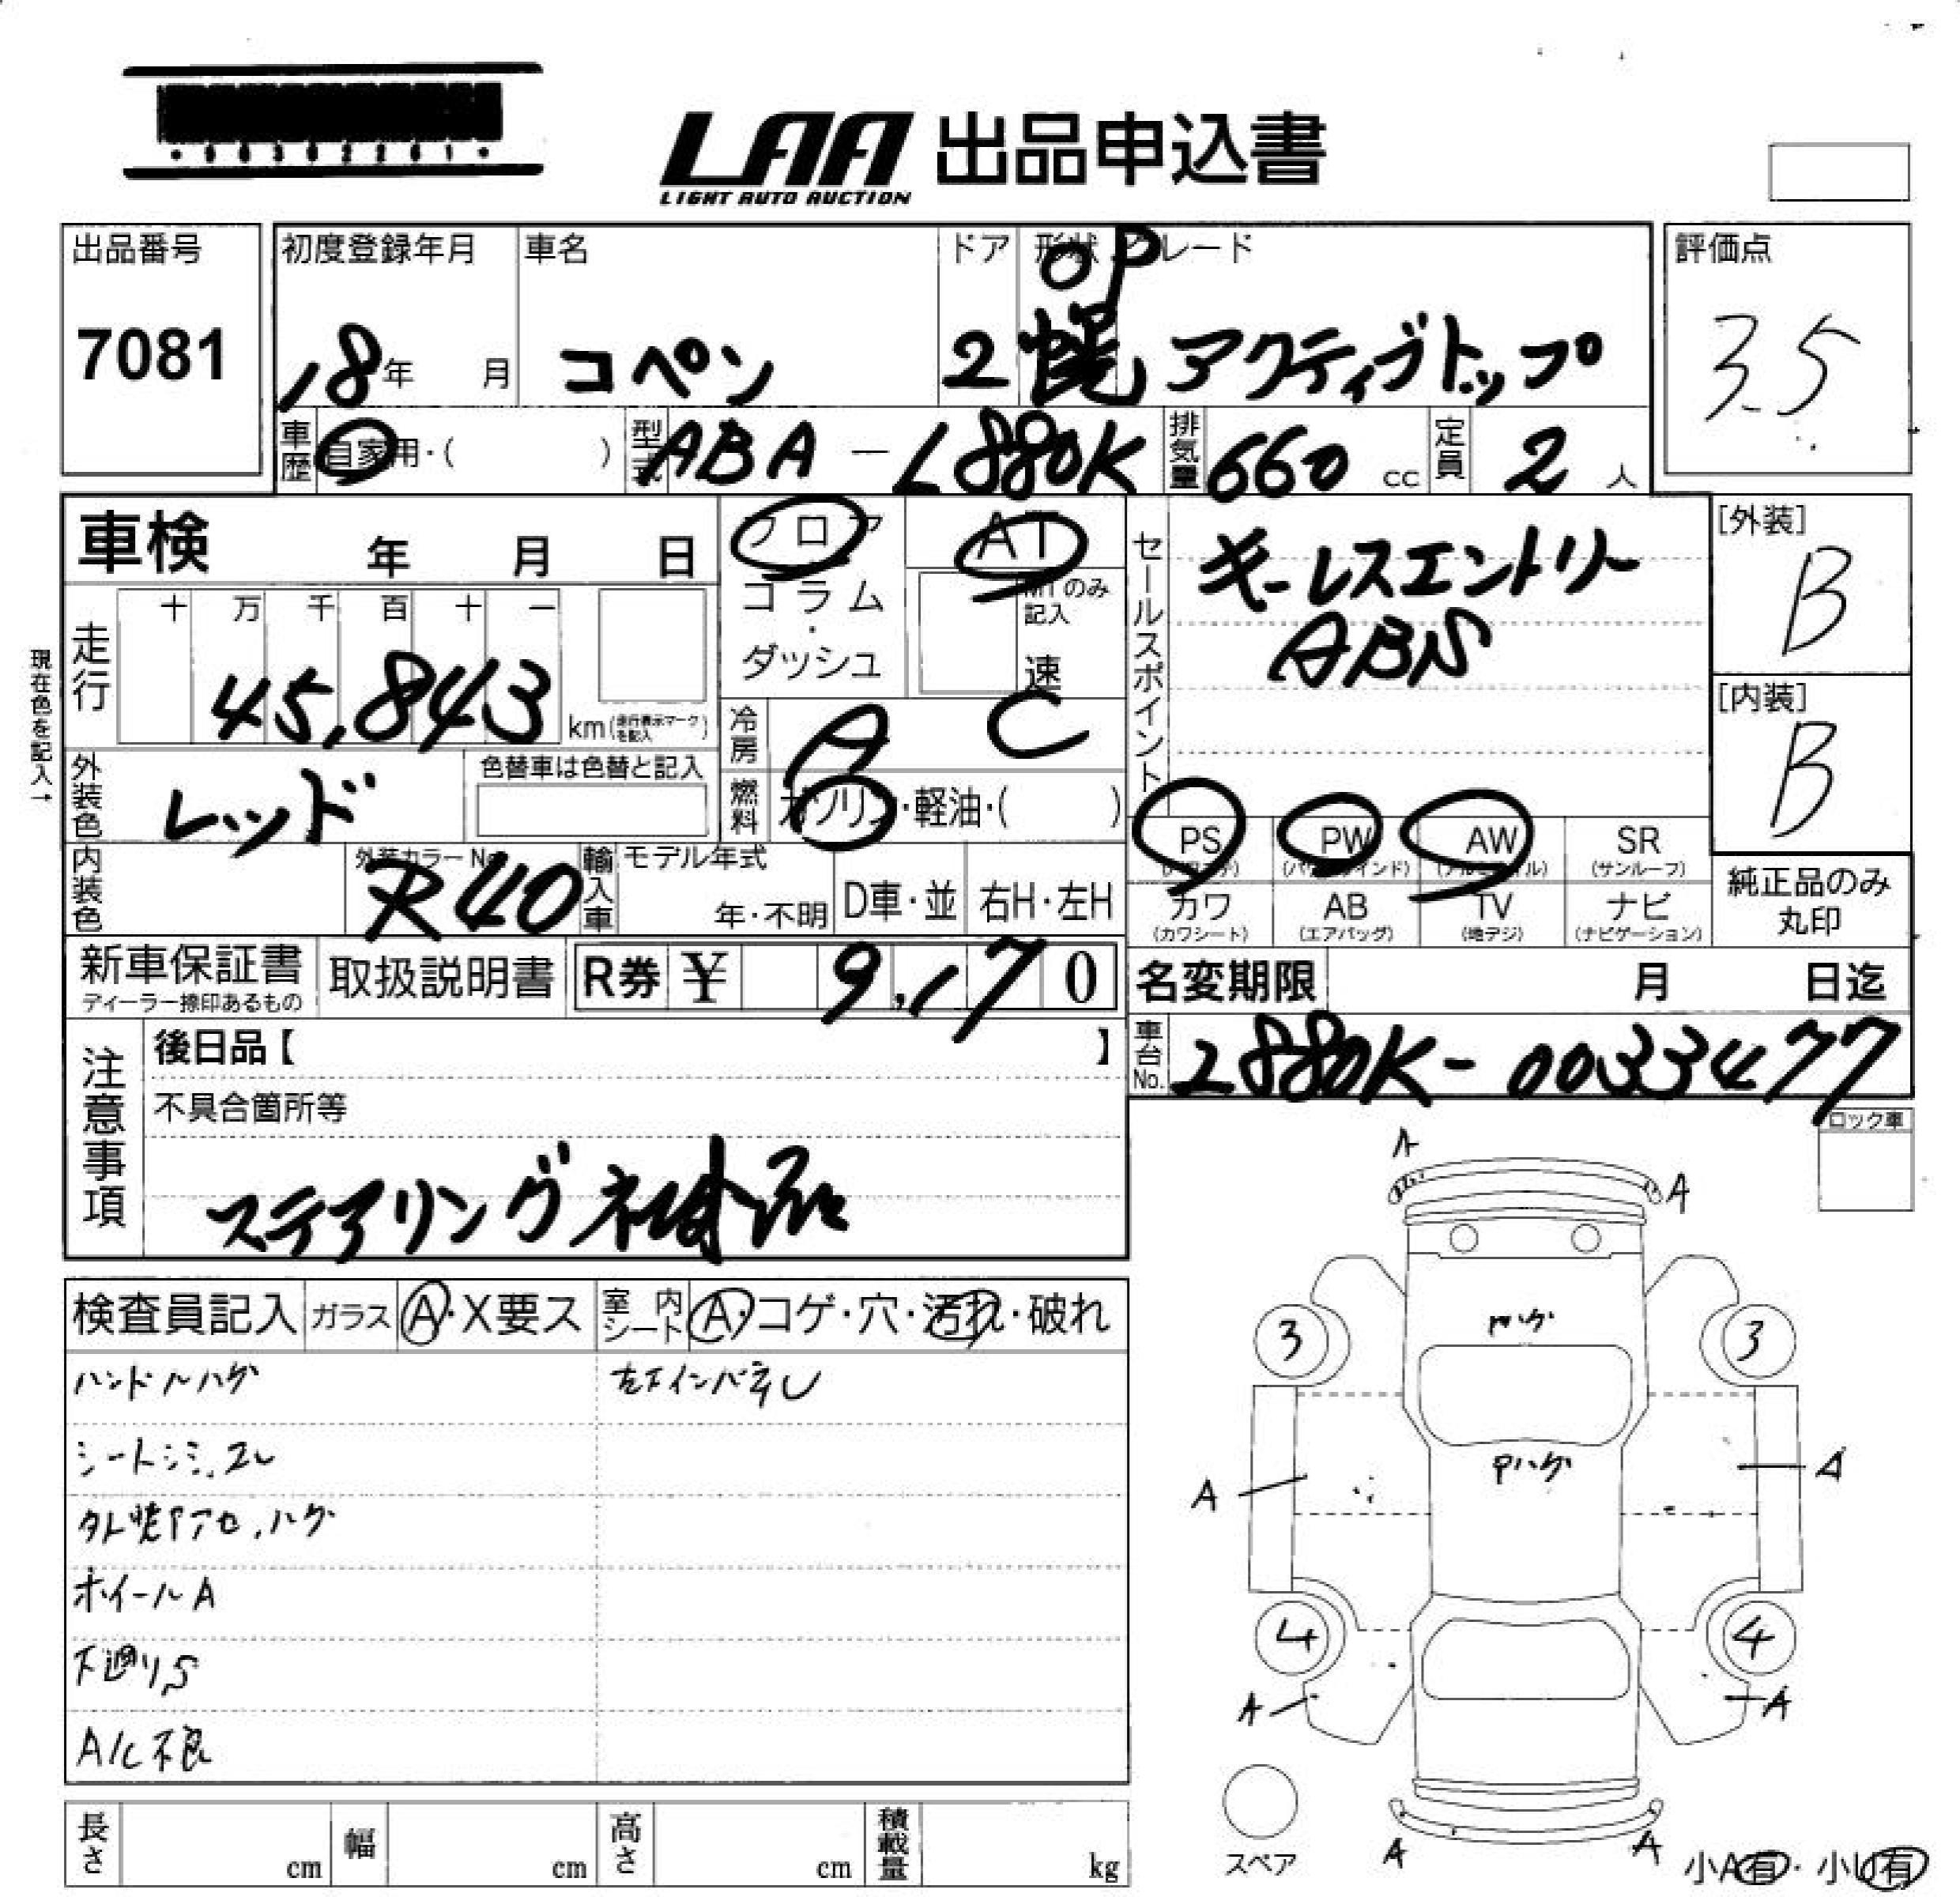 LAA 出品申込書
LIGHT AUTO AUCTION
出品番号
7081
初度登録年月
18年 月
車名
コペン
ドア
2
形状
OP
幌
グレード
アクティブトップ
評価点
3.5
車歴
自家用・( )
型式
ABA-L880K
排気量
660 cc
定員
2 人
車検 年 月 日
フロア
コラム・
ダッシュ
AT
MTのみ
記入
速
セールスポイント
キーレスエントリー
ABS
[外装]
B
[内装]
B
現在色を記入→
走行
十 万 千 百 十 一
45,843
km(走行表示マークを記入)
冷房
A C
外装色
レッド
色替車は色替と記入
燃料
ガソリン・軽油・( )
PS
(パワステ)
PW
(パワーウインド)
AW
(アルミホイル)
SR
(サンルーフ)
内装色
外装カラーNo.
R40
輸入車
モデル年式
年・不明
D車・並
右H・左H
カワ
(カワシート)
AB
(エアバッグ)
TV
(地デジ)
ナビ
(ナビゲーション)
純正品のみ
丸印
新車保証書
ディーラー捺印あるもの
取扱説明書
R券 ¥ 9,170
名変期限 月 日迄
車台No.
L880K-0033477
注意事項
後日品【 】
不具合箇所等
ステアリング社外品
ロック車
検査員記入
ガラス
A・X要ス
室内シート
A・コゲ・穴・汚れ・破れ
ハンドルハゲ
左下インパネU
シートシミ、スレ
ホイールA
下廻りS
A/C不良
A
A
3
3
Pハゲ
Pハゲ
A
A
4
4
A
A
A
A
スペア
小A有・小U有
長さ cm
幅 cm
高さ cm
積載量 kg